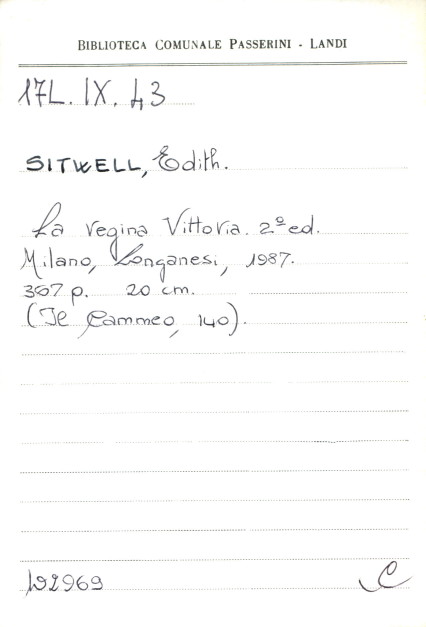 BIBLIOTECA COMUNALE PASSERINI - LANDI
17L. IX. 43
SITWELL, Edith.
La regina Vittoria. 2ª ed.
Milano, Longanesi, 1987.
367 p. 20 cm.
(Il Cammeo, 140).
192969
C